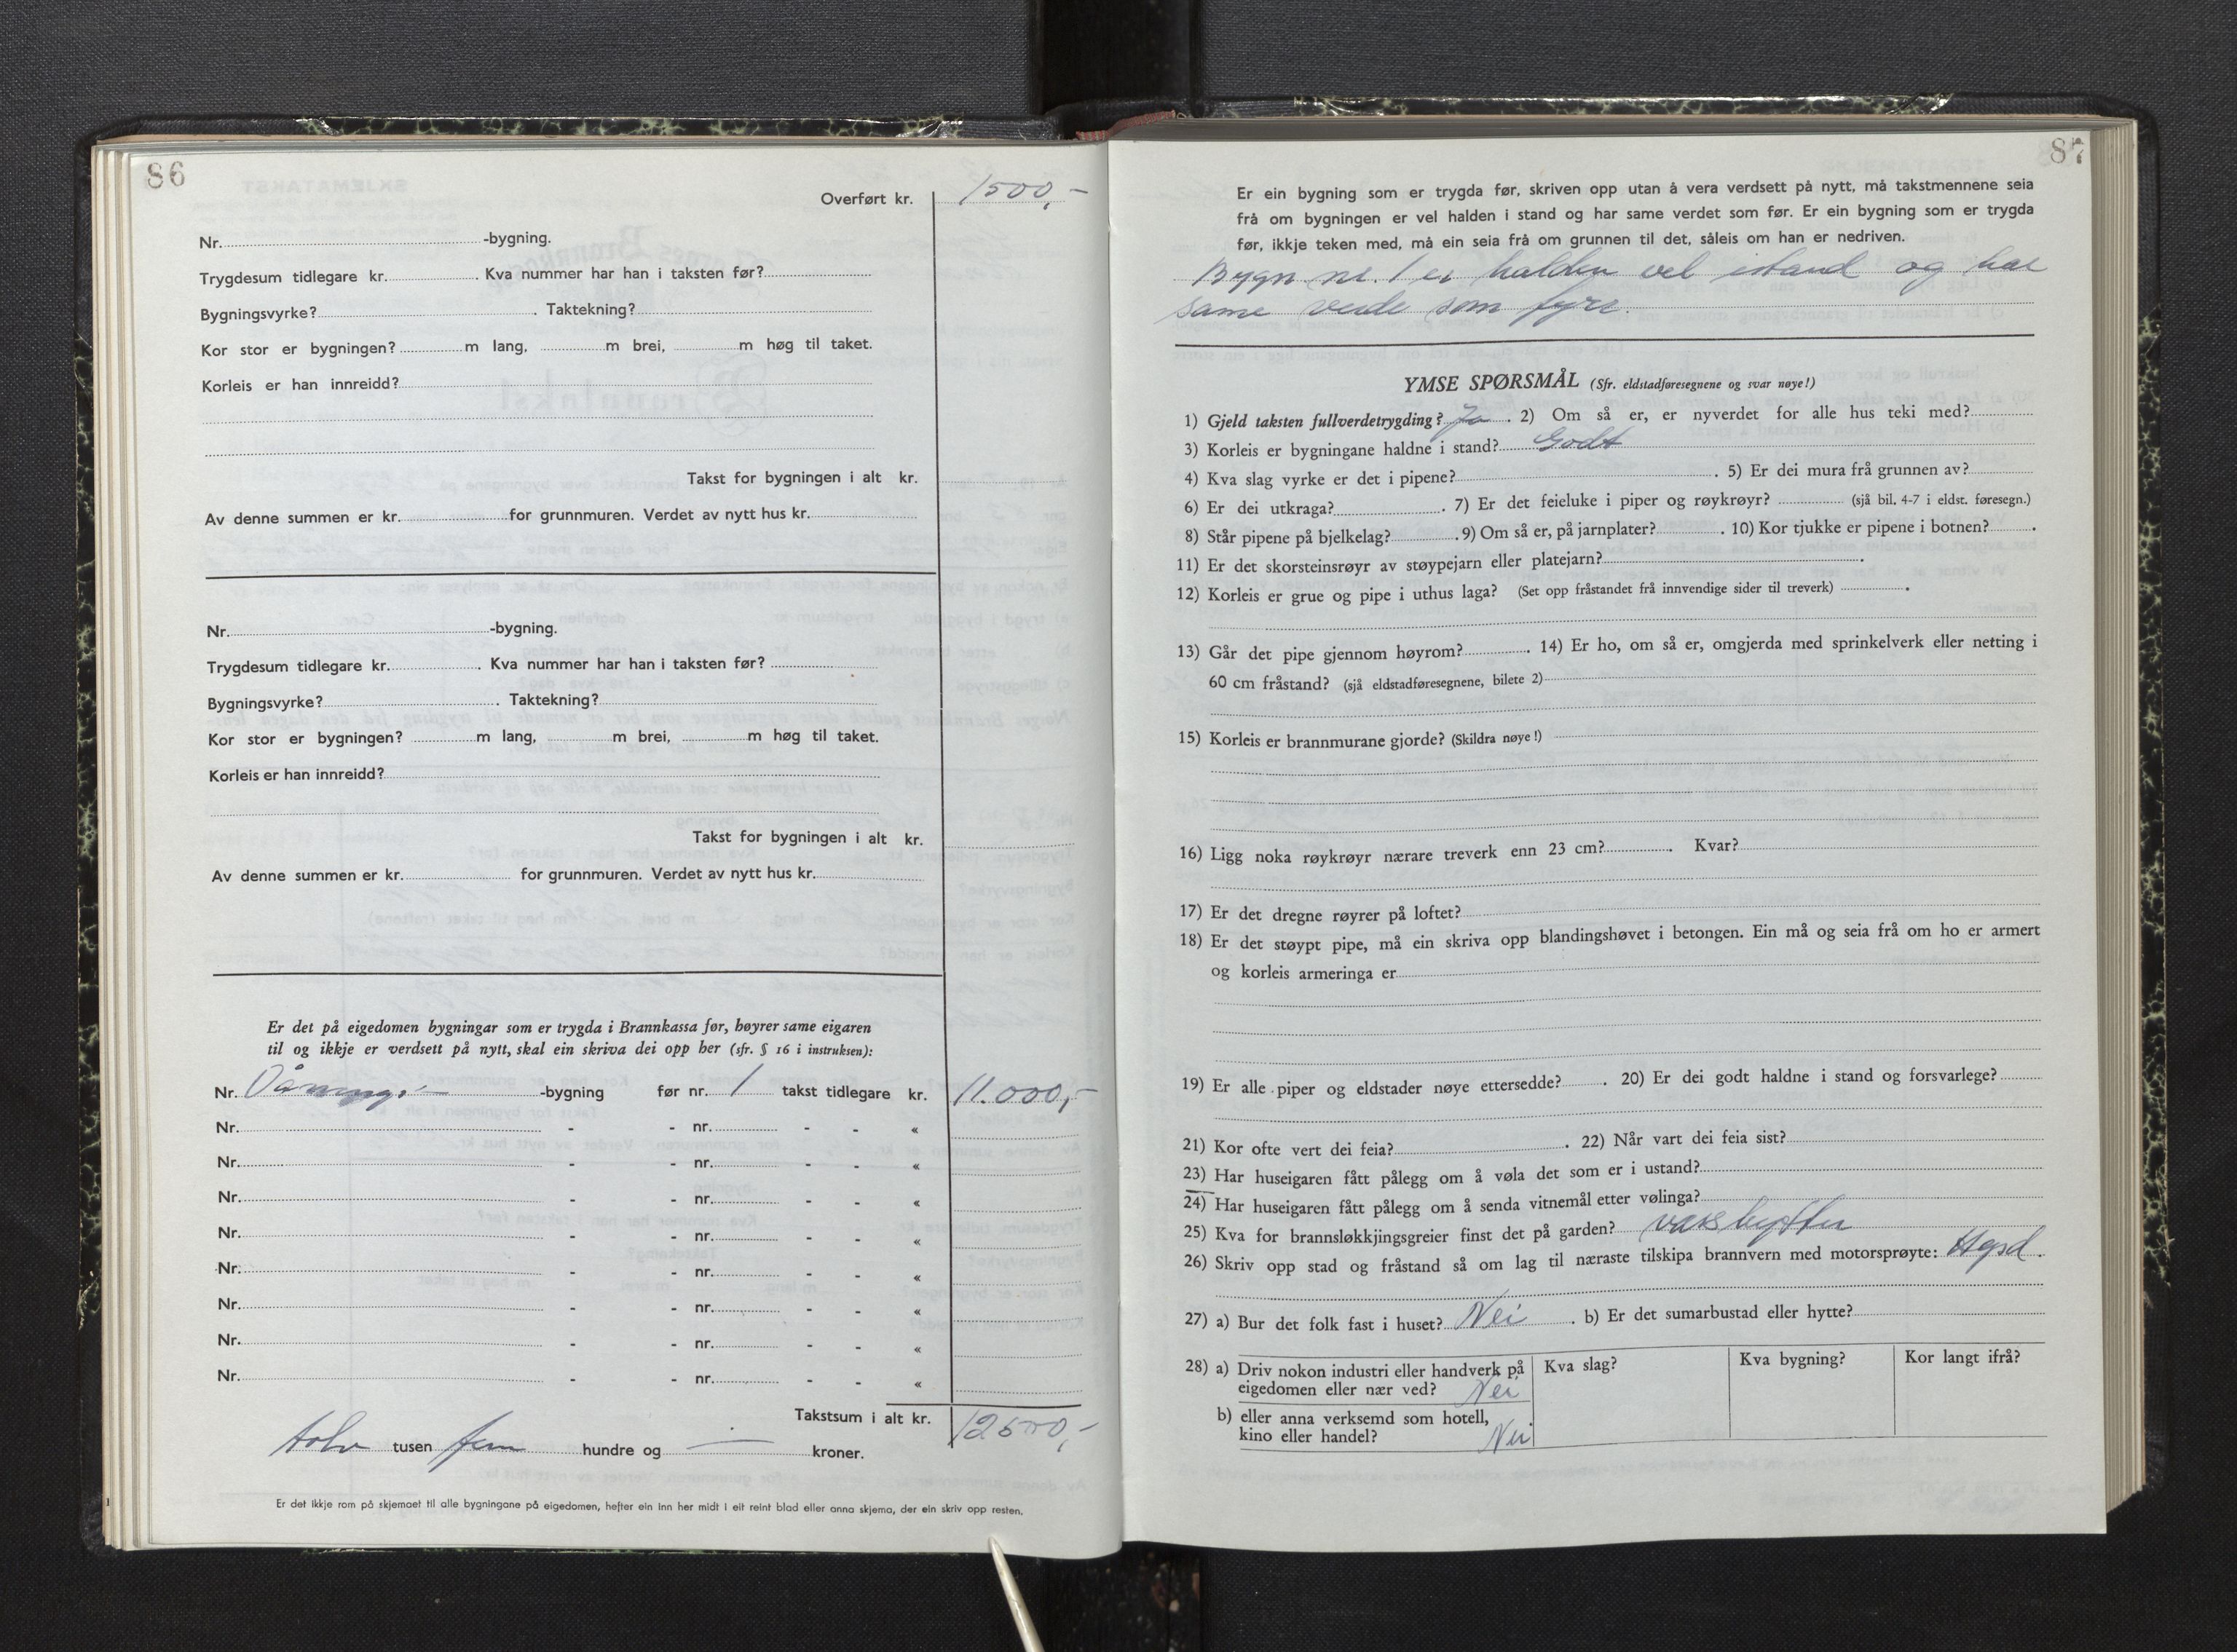 86
Overført kr. 1500,-
Nr. -bygning.
Trygdesum tidlegare kr. . Kva nummer har han i taksten før?
Bygningsvyrke? . Taktekning?
Kor stor er bygningen? m lang, m brei, m høg til taket.
Korleis er han innreidd?
Takst for bygningen i alt kr.
Av denne summen er kr. for grunnmuren. Verdet av nytt hus kr.
Nr. -bygning.
Trygdesum tidlegare kr. . Kva nummer har han i taksten før?
Bygningsvyrke? . Taktekning?
Kor stor er bygningen? m lang, m brei, m høg til taket.
Korleis er han innreidd?
Takst for bygningen i alt kr.
Av denne summen er kr. for grunnmuren. Verdet av nytt hus kr.
Er det på eigedomen bygningar som er trygda i Brannkassa før, høyrer same eigaren
til og ikkje er verdsett på nytt, skal ein skriva dei opp her (sfr. § 16 i instruksen):
Nr. Vånings- -bygning før nr. 1 takst tidlegare kr. 11.000,-
Nr. - - nr. - - «
Nr. - - nr. - - «
Nr. - - nr. - - «
Nr. - - nr. - - «
Nr. - - nr. - - «
Nr. - - nr. - - «
Nr. - - nr. - - «
Nr. - - nr. - - «
Takstsum i alt kr. 12500,-
tolv tusen fem hundre og — kroner.
Er det ikkje rom på skjemaet til alle bygningane på eigedomen, hefter ein inn her midt i eit reint blad eller anna skjema, der ein skriv opp resten.
87
Er ein bygning som er trygda før, skriven opp utan å vera verdsett på nytt, må takstmennene seia
frå om bygningen er vel halden i stand og har same verdet som før. Er ein bygning som er trygda
før, ikkje teken med, må ein seia frå om grunnen til det, såleis om han er nedriven.
Bygn nr. 1 er halden vel istand og har
same verde som fyrr.
YMSE SPØRSMÅL (Sfr. eldstadføresegnene og svar nøye!)
1) Gjeld taksten fullverdetrygding? Ja . 2) Om så er, er nyverdet for alle hus teki med?
3) Korleis er bygningane haldne i stand? Godt
4) Kva slag vyrke er det i pipene? . 5) Er dei mura frå grunnen av?
6) Er dei utkraga? . 7) Er det feieluke i piper og røykrøyr? (sjå bil. 4-7 i eldst. føresegn.)
8) Står pipene på bjelkelag? . 9) Om så er, på jarnplater? . 10) Kor tjukke er pipene i botnen? .
11) Er det skorsteinsrøyr av støypejarn eller platejarn? .
12) Korleis er grue og pipe i uthus laga? (Set opp fråstandet frå innvendige sider til treverk) .
13) Går det pipe gjennom høyrom? . 14) Er ho, om så er, omgjerda med sprinkelverk eller netting i
60 cm fråstand? (sjå eldstadføresegnene, bilete 2)
15) Korleis er brannmurane gjorde? (Skildra nøye!)
16) Ligg noka røykrøyr nærare treverk enn 23 cm? . Kvar?
17) Er det dregne røyrer på loftet?
18) Er det støypt pipe, må ein skriva opp blandingshøvet i betongen. Ein må og seia frå om ho er armert
og korleis armeringa er
19) Er alle piper og eldstader nøye ettersedde? . 20) Er dei godt haldne i stand og forsvarlege?
21) Kor ofte vert dei feia? . 22) Når vart dei feia sist?
23) Har huseigaren fått pålegg om å vøla det som er i ustand?
24) Har huseigaren fått pålegg om å senda vitnemål etter vølinga?
25) Kva for brannsløkkjingsgreier finst det på garden?
26) Skriv opp stad og fråstand så om lag til næraste tilskipa brannvern med motorsprøyte:
27) a) Bur det folk fast i huset? Nei . b) Er det sumarbustad eller hytte?
28) a) Driv nokon industri eller handverk på Kva slag? Kva bygning? Kor langt ifrå?
eigedomen eller nær ved? Nei
b) eller anna verksemd som hotell,
kino eller handel? Nei